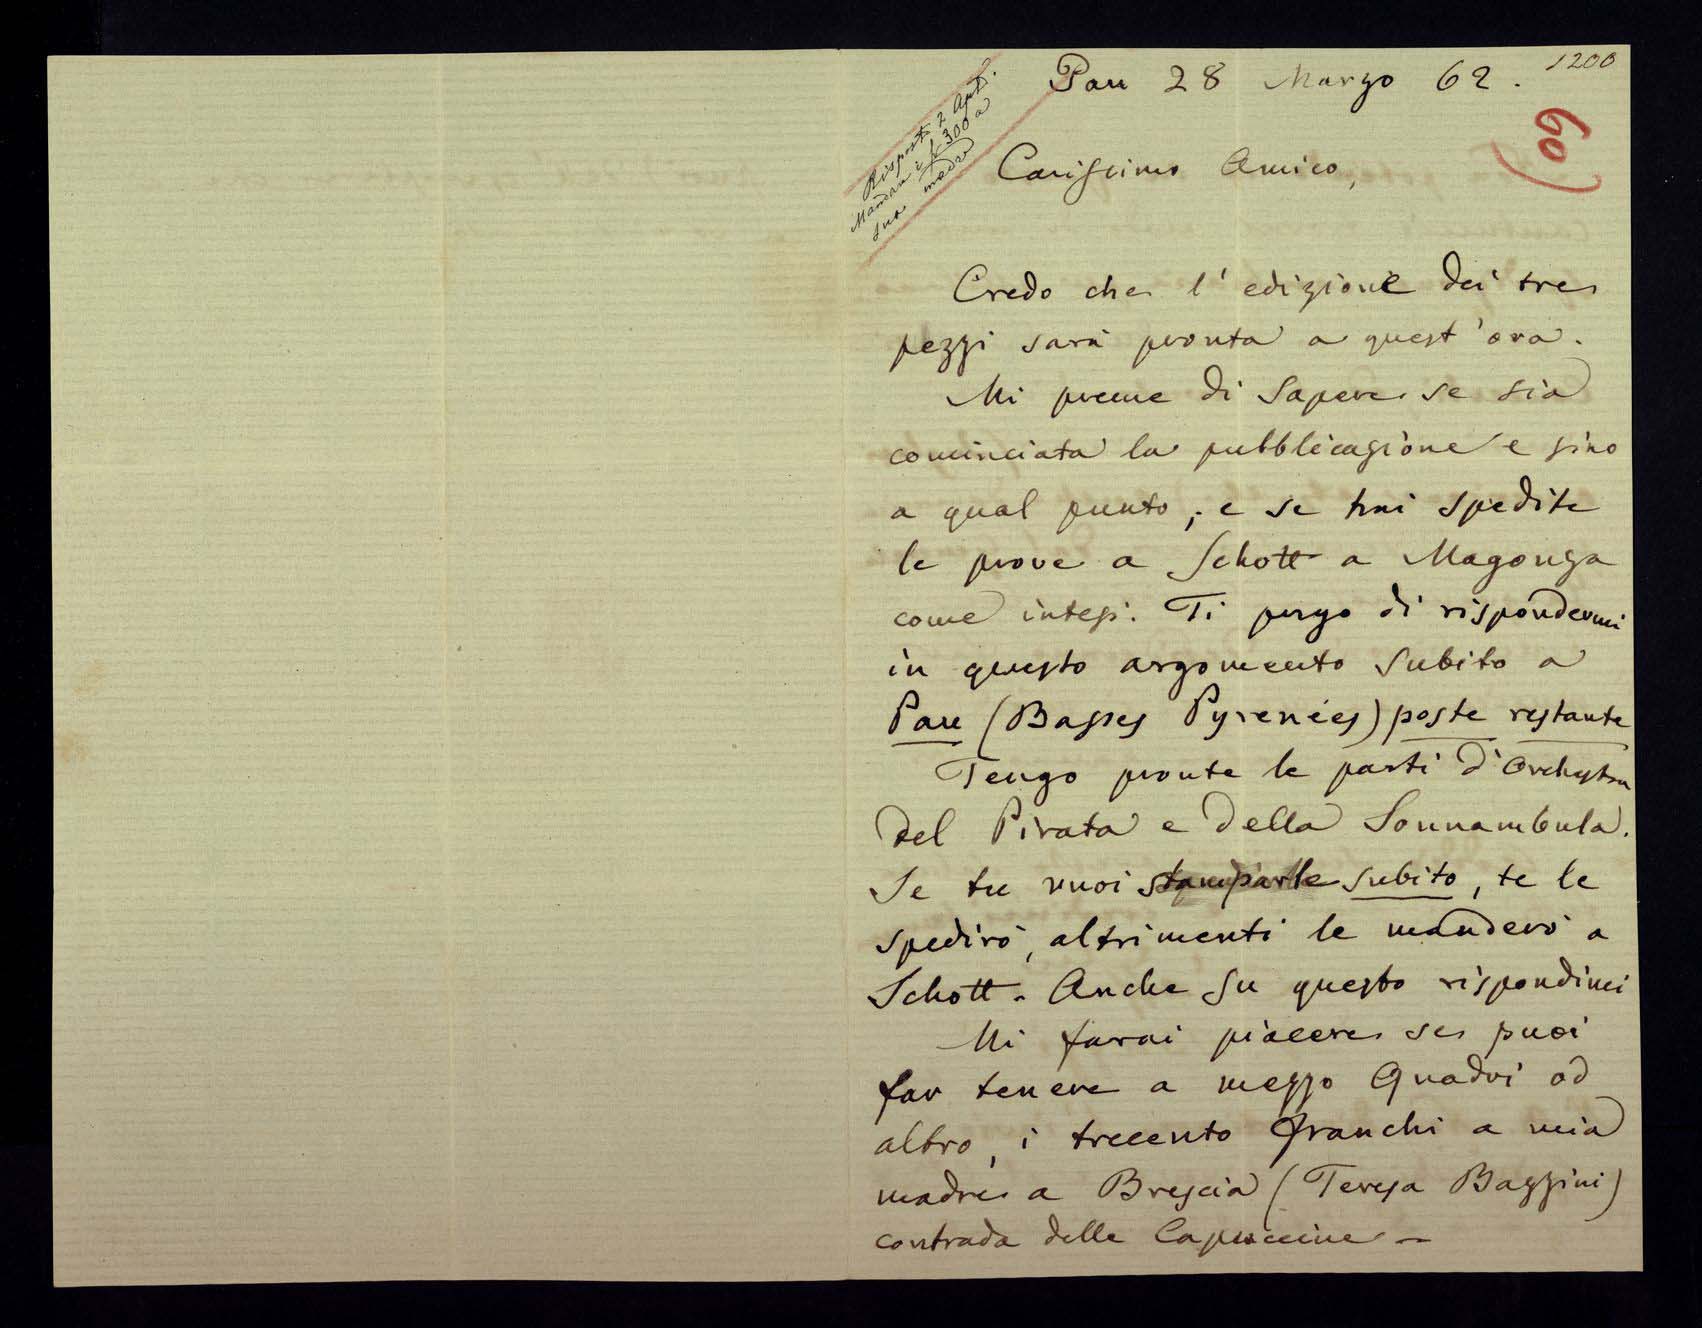 1200
Pau 28 Marzo 62.
60
Risposto 2 Apr.
Mandani fr 300 a
sua madre
Carissimo Amico,
Credo che l'edizione dei tre
pezzi sarà pronta a quest'ora.
Mi preme di sapere se sia
cominciata la pubblicazione e sino
a qual punto, e se tu mi spedite
le prove a Schott a Magonza
come intesi. Ti prego di rispondermi
in questo argomento subito a
Pau (Basses Pyrenées) poste restante
Tengo pronte le parti d'Orchestra
del Pirata e della Sonnambula.
Se tu vuoi stamparle subito, te le
spedirò, altrimenti le manderò a
Schott. Anche su questo rispondimi
Mi farai piacere se puoi
far tenere a mezzo Quadri od
altro, i trecento franchi a mia
madre a Brescia (Teresa Bazzini)
contrada delle Capuccine —